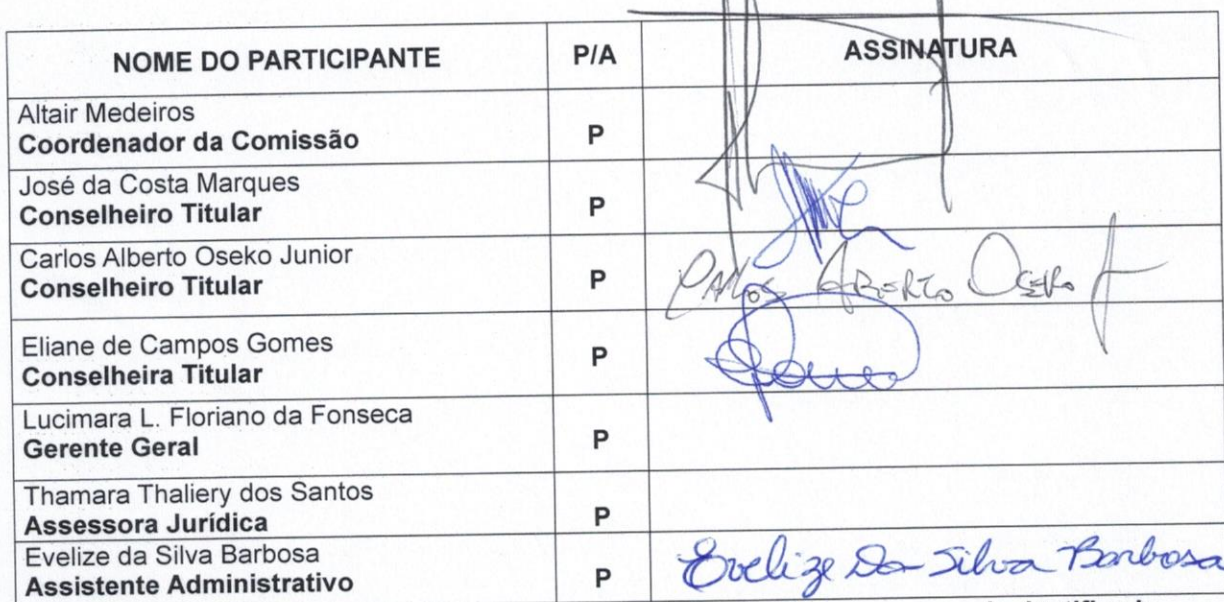 NOME DO PARTICIPANTE P/A ASSINATURA
Altair Medeiros
Coordenador da Comissão P
José da Costa Marques
Conselheiro Titular P
Carlos Alberto Oseko Junior
Conselheiro Titular P Carlos Alberto Oseko Jr
Eliane de Campos Gomes
Conselheira Titular P
Lucimara L. Floriano da Fonseca
Gerente Geral P
Thamara Thaliery dos Santos
Assessora Jurídica P
Evelize da Silva Barbosa
Assistente Administrativo P Evelize Da Silva Barbosa